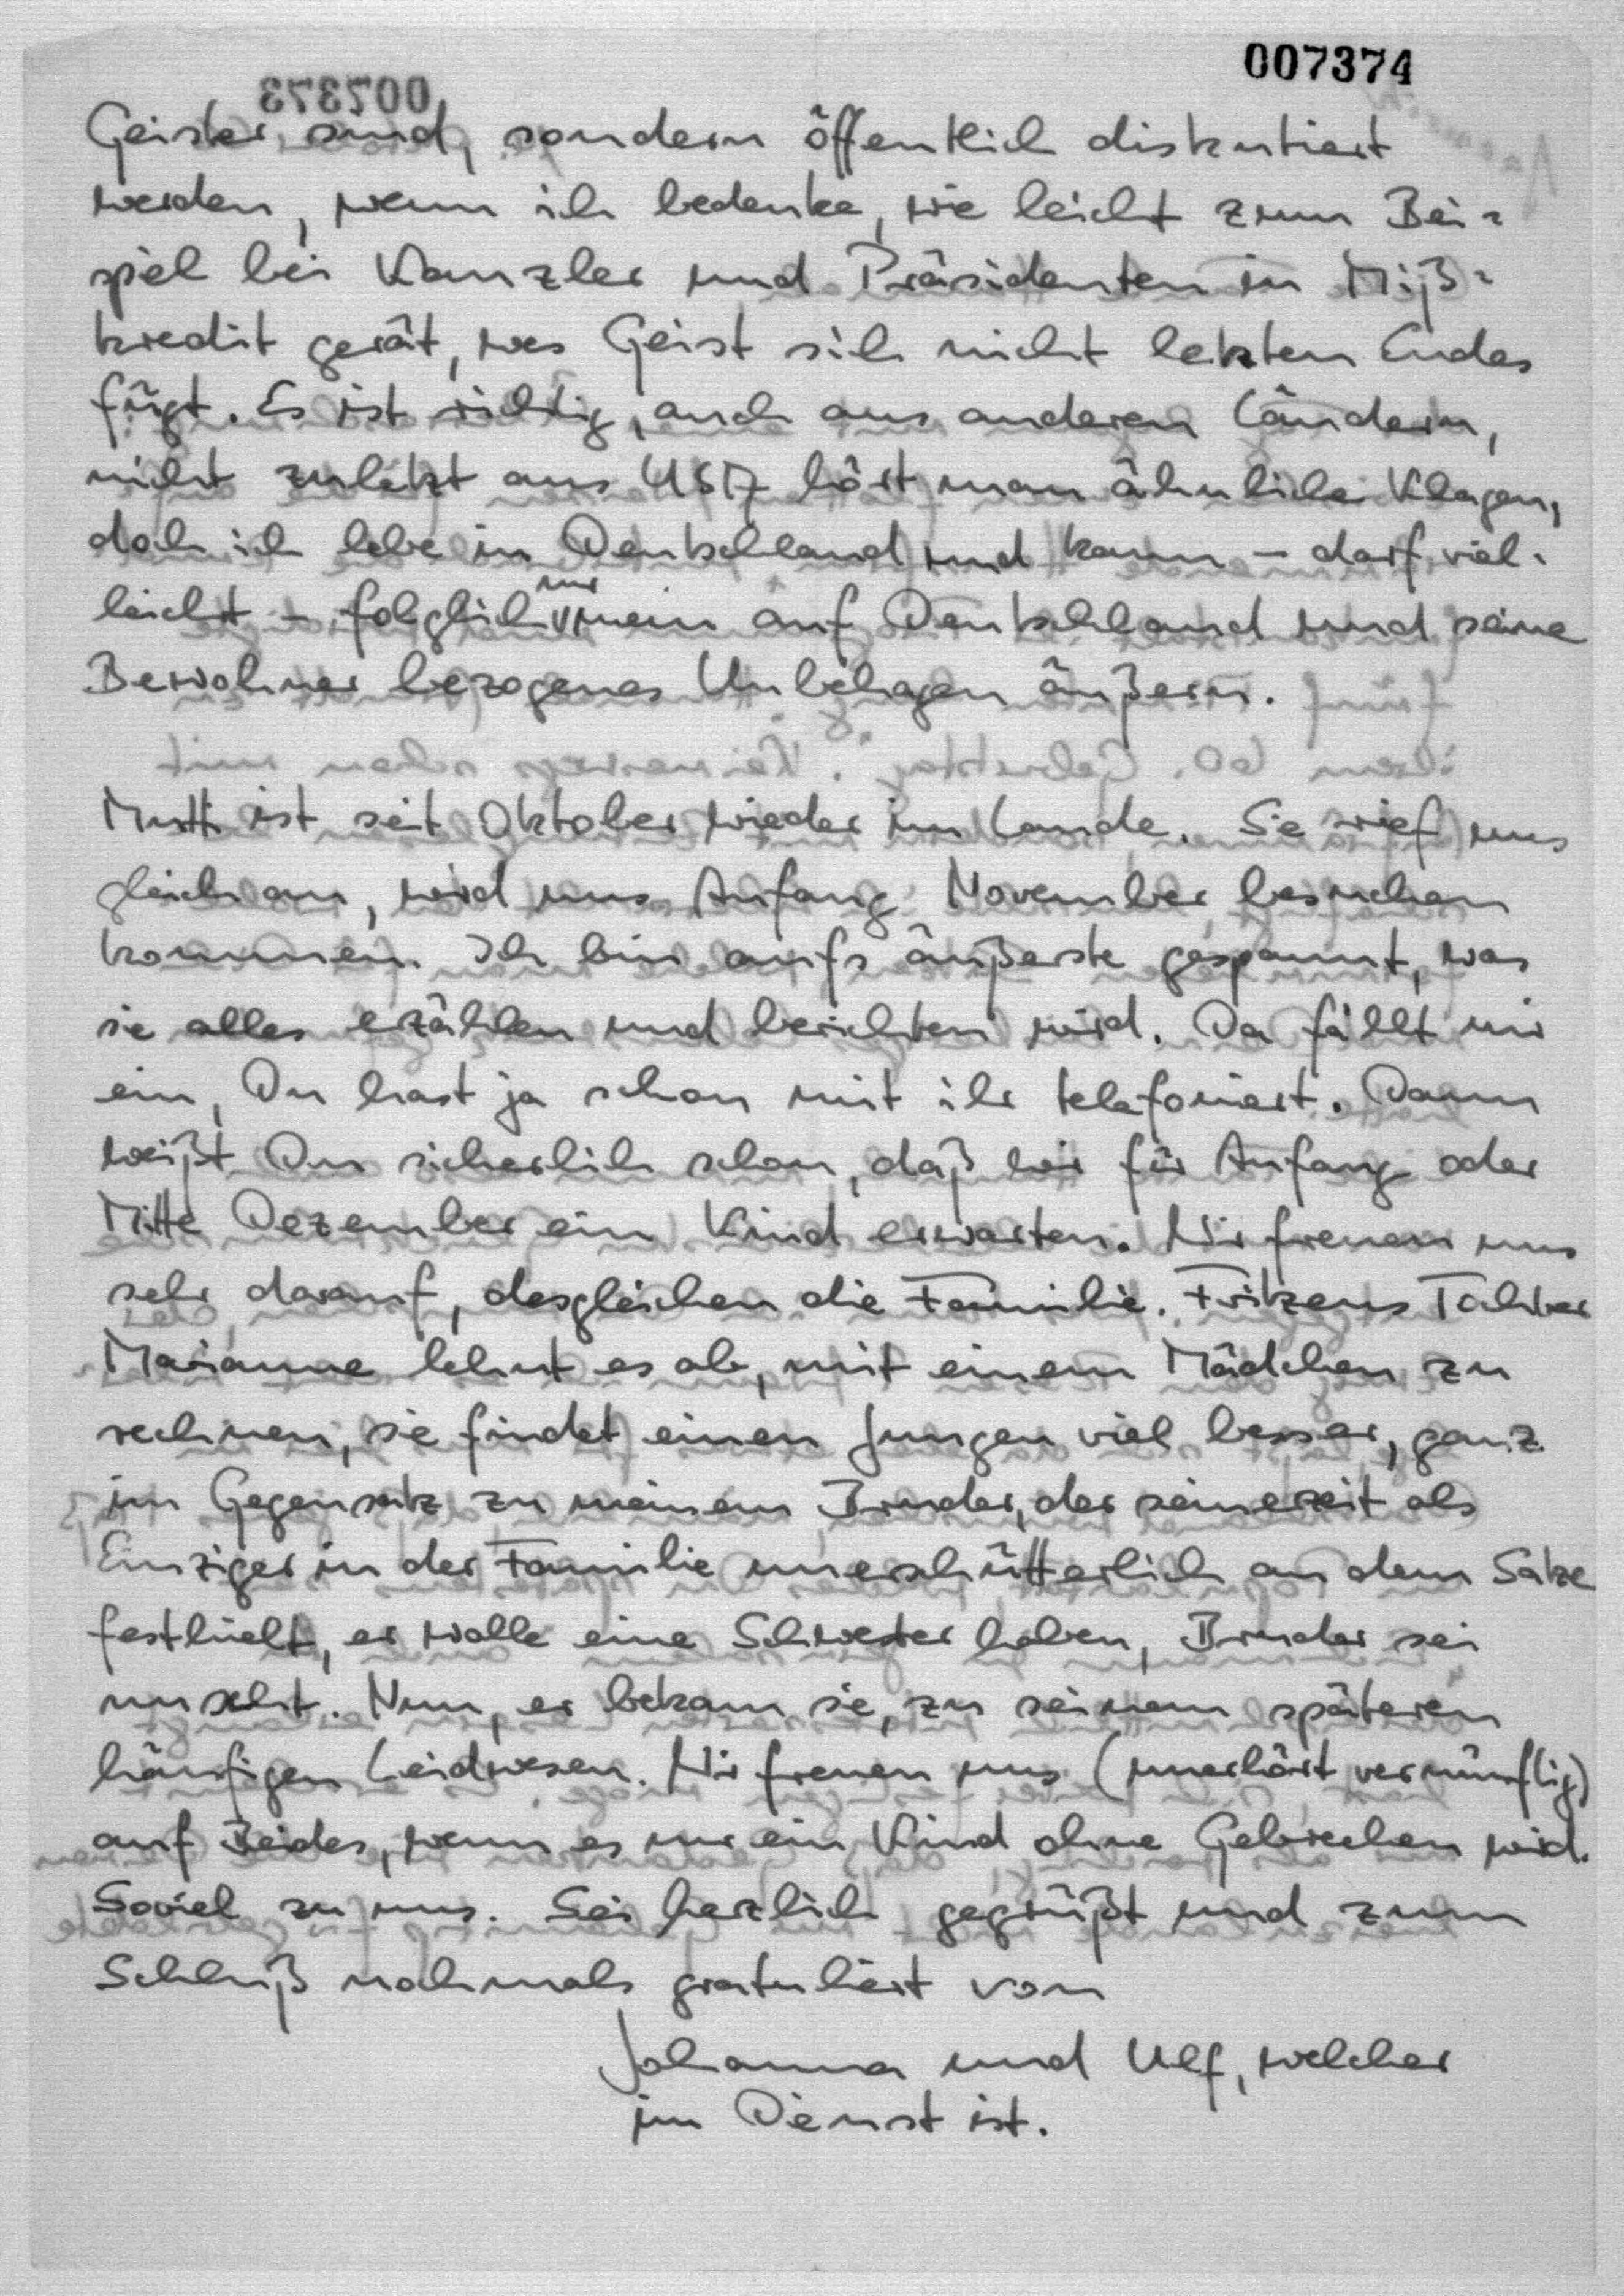 007374
007373
Geister sind, sondern öffentlich diskutiert
werden, wenn ich bedenke, wie leicht zum Bei-
spiel bei Kanzler und Präsidenten in Miß-
kredit gerät, wes Geist sich nicht letzten Endes
fügt. Es ist richtig, auch aus anderen Ländern,
nicht zuletzt aus USA hört man ähnliche Klagen,
doch ich lebe in Deutschland und kann - darf viel-
leicht - folglich nur mein auf Deutschland und seine
Bewohner bezogenes Unbehagen äußern.
Mutti ist seit Oktober wieder im Lande. Sie rief uns
gleich an, wird uns Anfang November besuchen
kommen. Ich bin aufs äußerste gespannt, was
sie alles erzählen und berichten wird. Da fällt mir
ein, Du hast ja schon mit ihr telefoniert. Dann
weißt Du sicherlich schon, daß wir für Anfang oder
Mitte Dezember ein Kind erwarten. Wir freuen uns
sehr darauf, desgleichen die Familie. Fritzens Tochter
Marianne lehnt es ab, mit einem Mädchen zu
rechnen, sie findet einen Jungen viel besser, ganz
im Gegensatz zu meinem Bruder, der seinerzeit als
Einziger in der Familie unerschütterlich an dem Satze
festhielt, er wolle eine Schwester haben, Bruder sei
unscht. Nun, er bekam sie, zu seinem späteren
häufigen Leidwesen. Wir freuen uns (unerhört vernünftig)
auf Beides, wenn es nur ein Kind ohne Gebrechen wird.
Soviel zu uns. Sei herzlich gegrüßt und zum
Schluß nochmals gratuliert von
Johanna und Ulf, welcher
im Dienst ist.